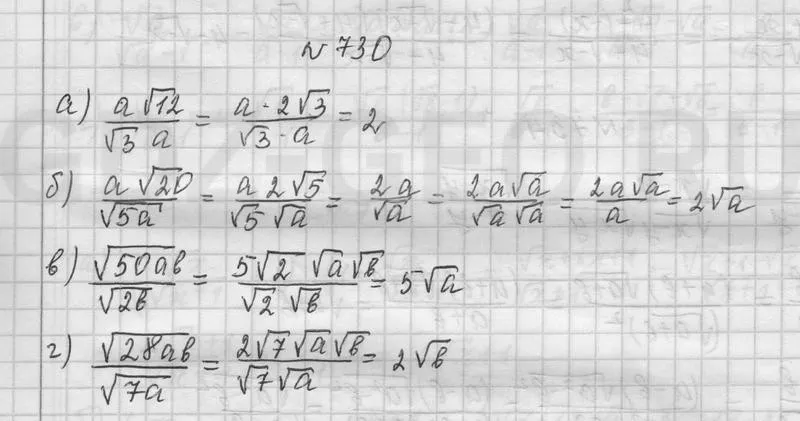 № 730
а) a√12 / √3 a = a · 2√3 / √3 · a = 2
б) a√20 / √5a = a 2√5 / √5 √a = 2a / √a = 2a√a / √a √a = 2a√a / a = 2√a
в) √50ab / √2b = 5√2 √a √b / √2 √b = 5√a
г) √28ab / √7a = 2√7 √a √b / √7 √a = 2√b